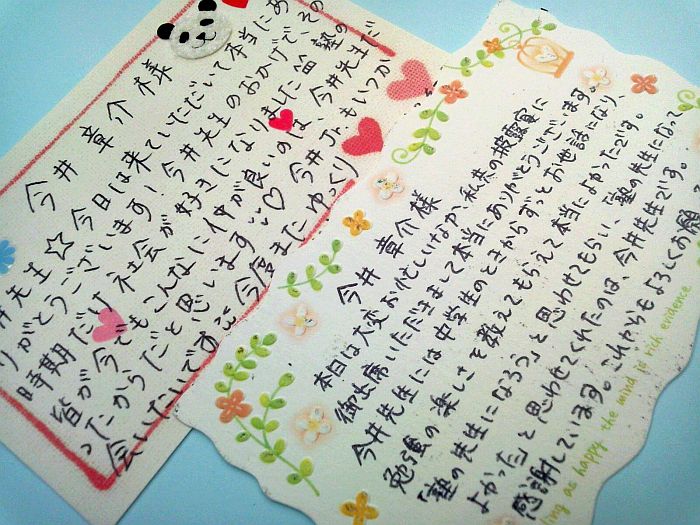 今井 章介 様
井先生☆今日は来ていただいて本当にあ
りがとうございます!今井先生のおかげで、その
時期だけ社会が好きになりました 塾の
皆が今でもこんなに仲が良いのは、今井先生だ
ったからだと思います♡今井Jr.もいつか
会いたいです 今度またゆっくり
今井 章介様
本日は大変お忙しいなか、私共の披露宴に
御出席いただきまして本当にありがとうございます。
今井先生には中学生のときからずっとお世話になり、
勉強の楽しさを教えてもらえて本当によかったです。
「塾の先生になろう」と思わせてもらい、「塾の先生になって
よかった」と思わせてくれたのは、今井先生です。
感謝しています。これからもよろしくお願
ling as happy the mind is rich evidence